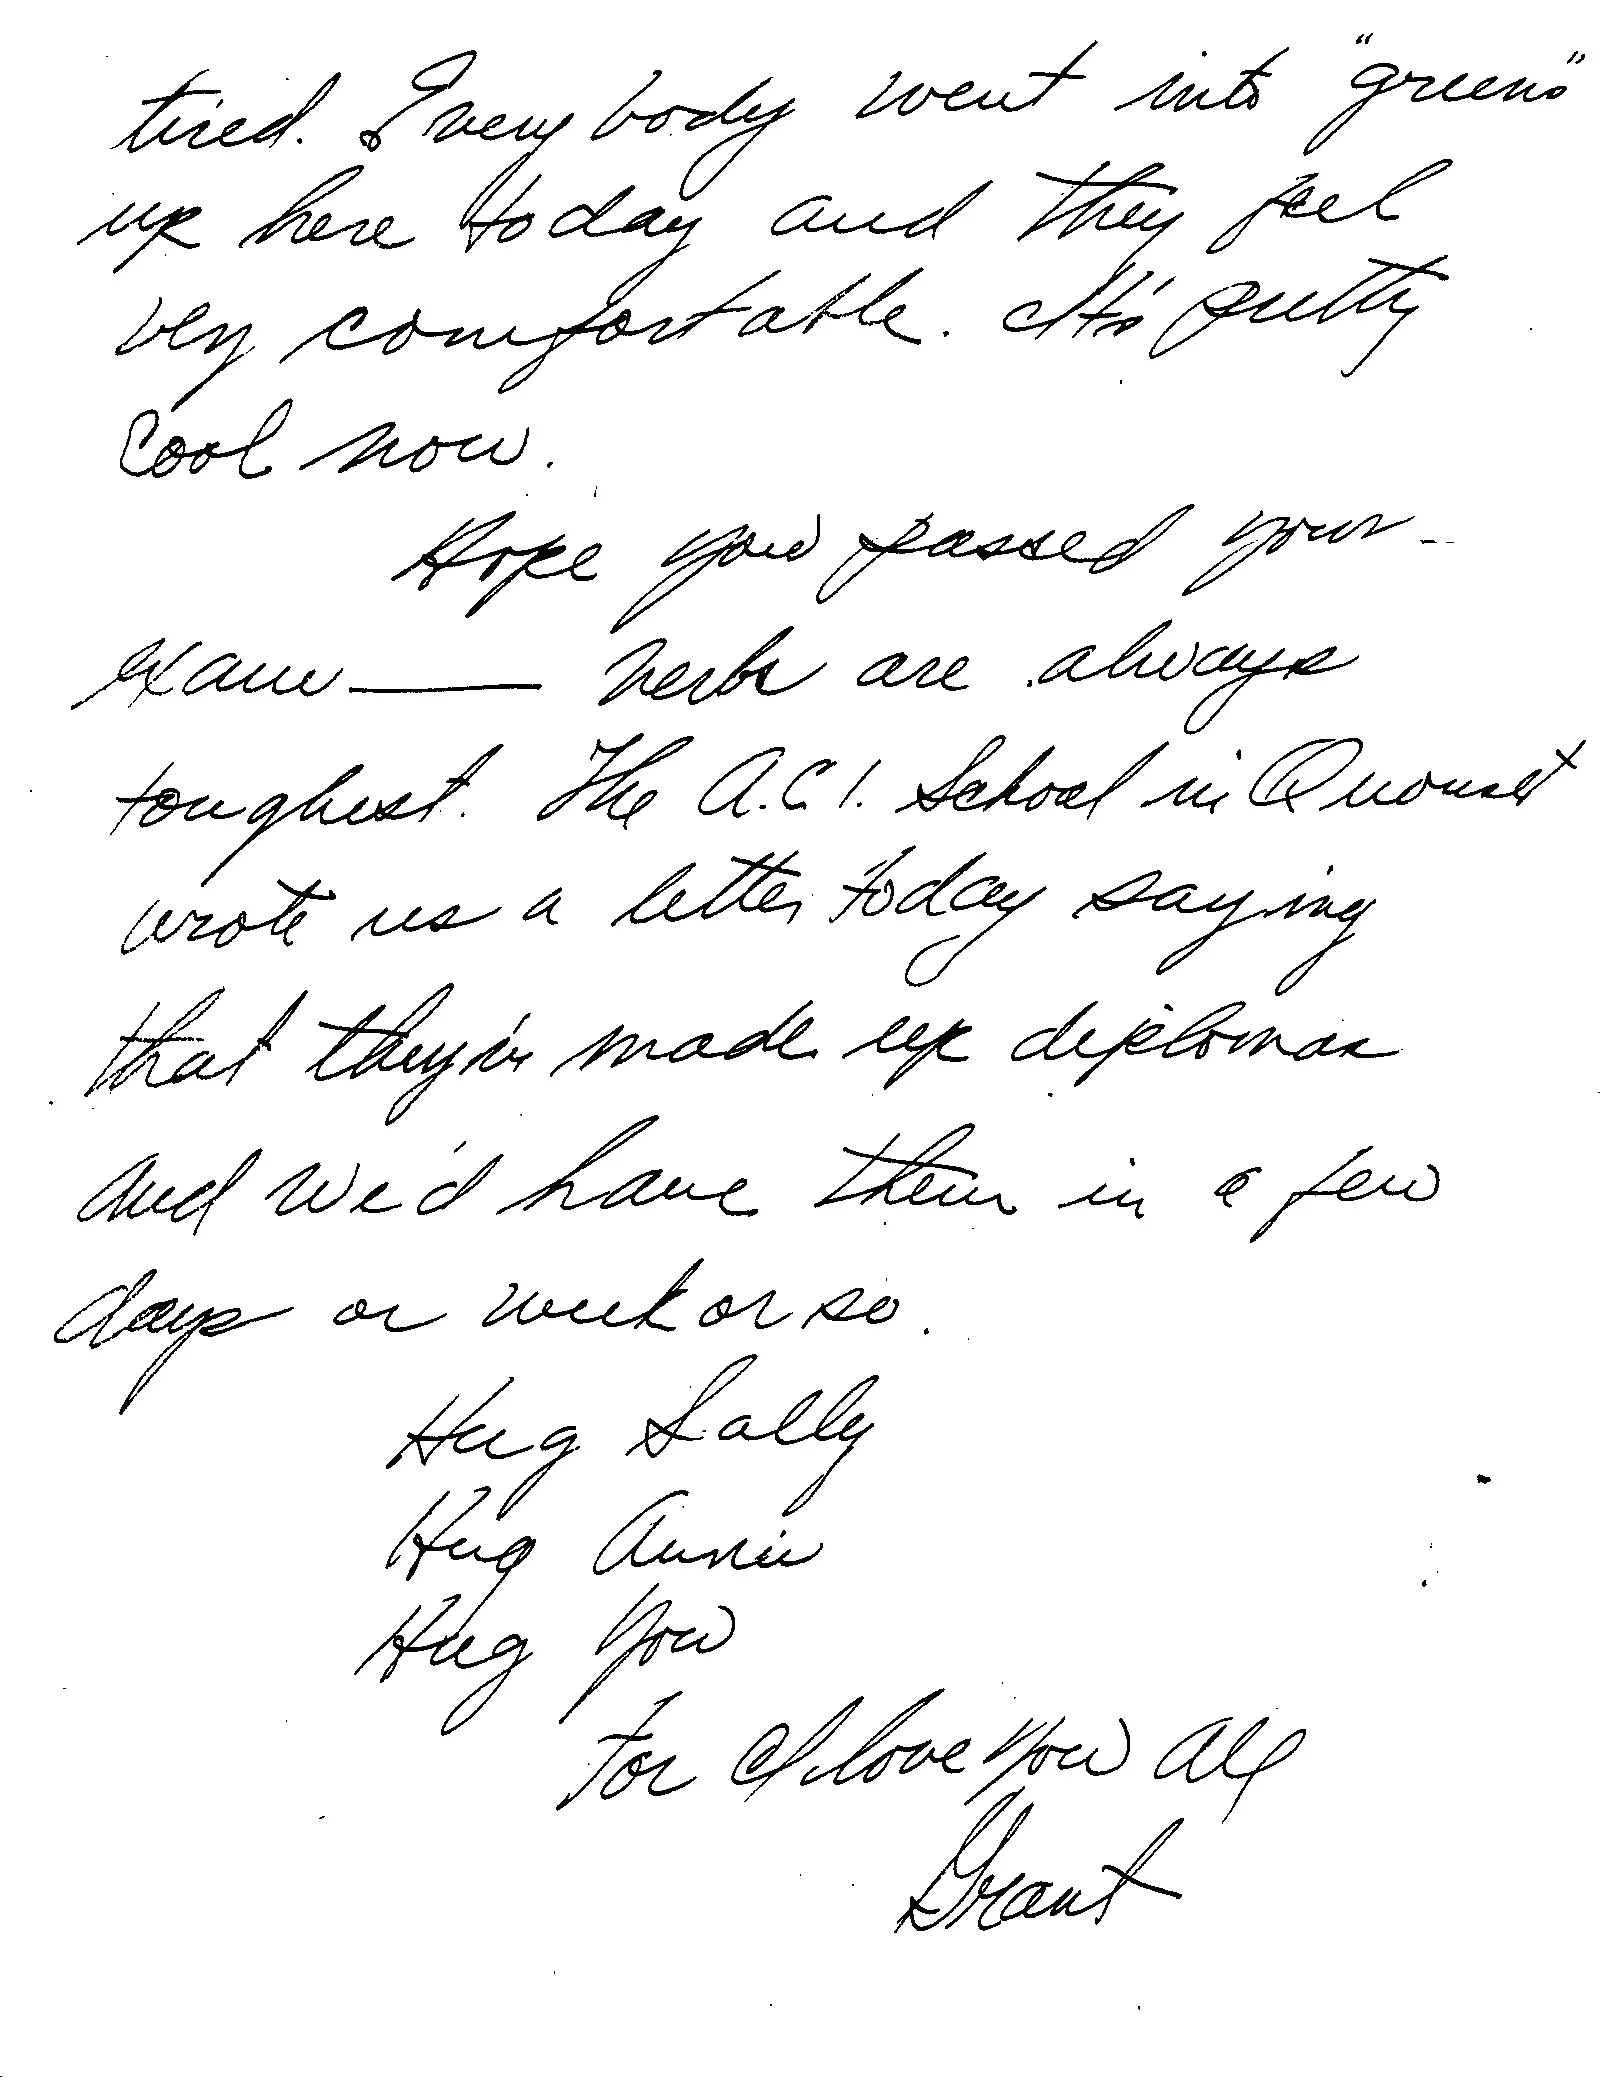 tired. Everybody went into "greens"
up here today and they feel
very comfortable. It's pretty
cool now.
Hope you passed your
exam — verbs are always
toughest. The A.C.I. School in Quonset
wrote us a letter today saying
that they've made up diplomas
and we'd have them in a few
days or week or so.
Hug Sally
Hug Annie
Hug You
For I love you all
Grant